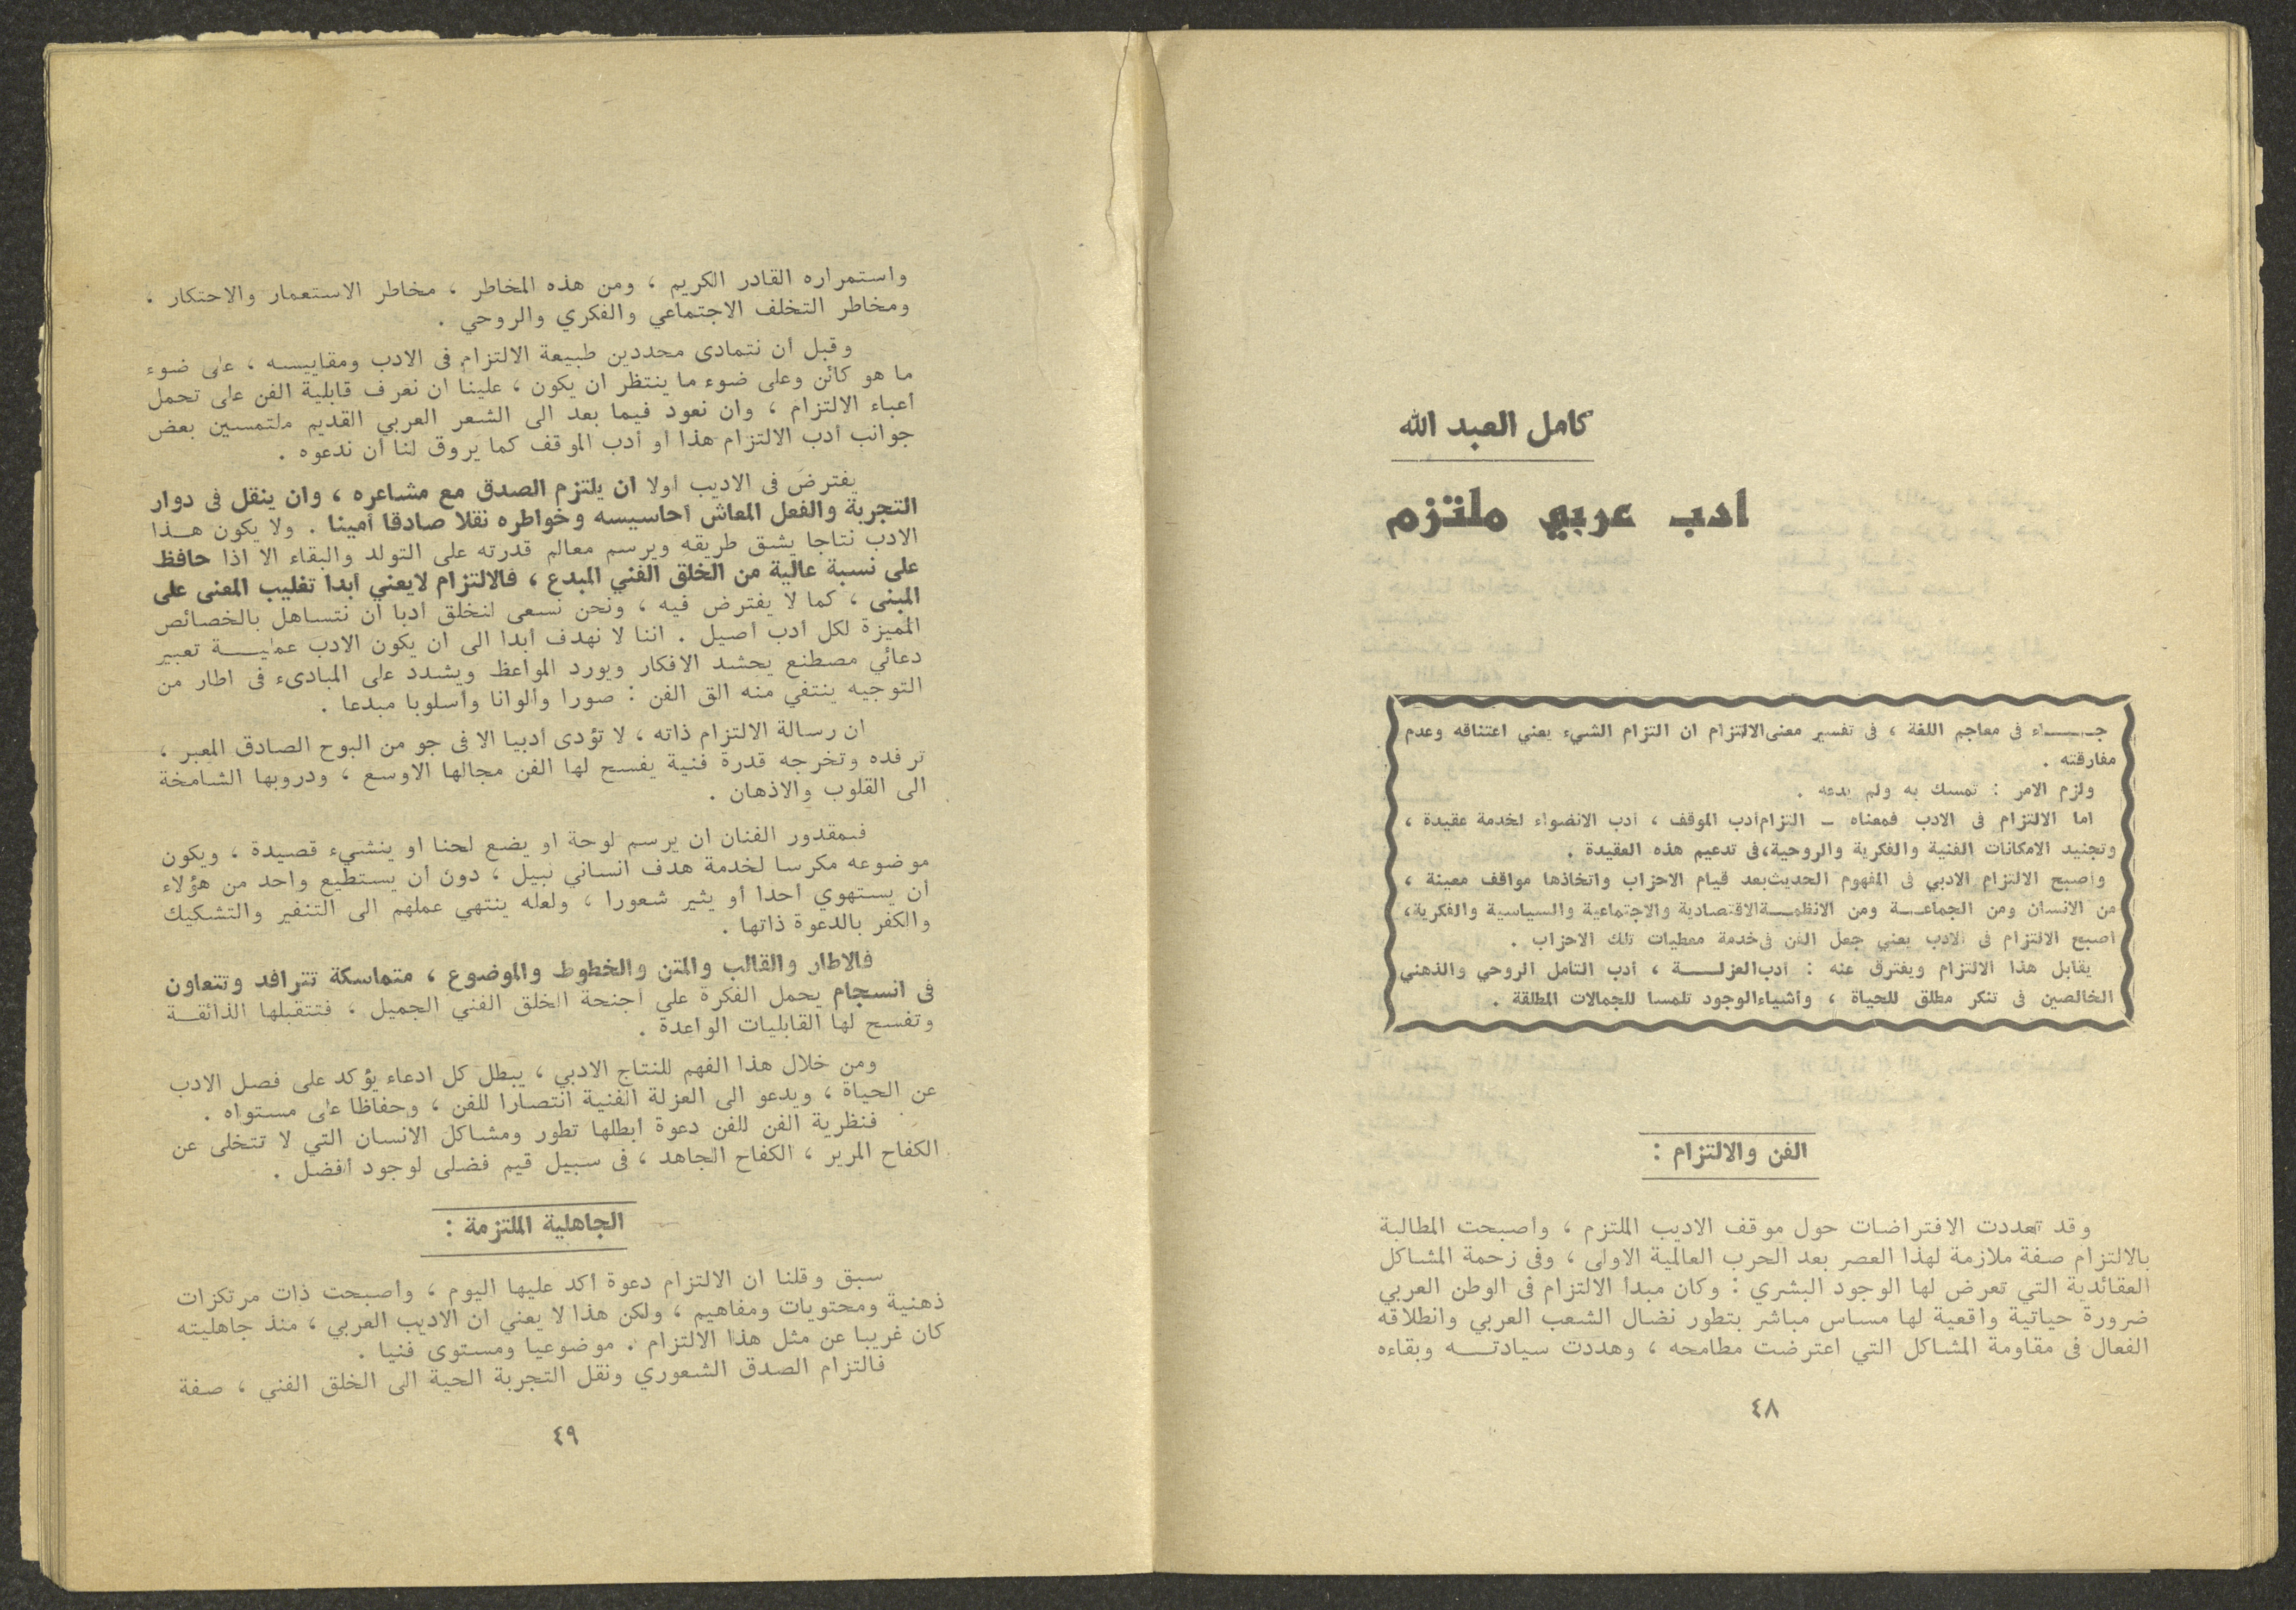 كامل العبد الله
ادب عربي ملتزم
جـــــاء فى معاجم اللغة ، فى تفسير معنى الالتزام ان التزام الشيء يعني اعتناقه وعدم
مفارقته .
ولزم الامر : تمسك به ولم يدعه .
اما الالتزام فى الادب فمعناه – التزام أدب الموقف ، أدب الانضواء لخدمة عقيدة ،
وتجنيد الامكانات الفنية والفكرية والروحية، فى تدعيم هذه العقيدة .
وأصبح الالتزام الادبي فى المفهوم الحديث بعد قيام الاحزاب واتخاذها مواقف معينة ،
من الانسان ومن الجماعـــة ومن الانظمـــة الاقتصادية والاجتماعية والسياسية والفكرية،
أصبح الالتزام فى الادب يعني جعل الفن فى خدمة معطيات تلك الاحزاب .
يقابل هذا الالتزام ويفترق عنه : أدب العزلـــــة ، أدب التامل الروحي والذهني
الخالصين فى تنكر مطلق للحياة ، وأشياء الوجود تلمسا للجمالات المطلقة .
الفن والالتزام :
وقد تعددت الافتراضات حول موقف الاديب الملتزم ، وأصبحت المطالبة
بالالتزام صفة ملازمة لهذا العصر بعد الحرب العالمية الاولى ، وفى زحمة المشاكل
العقائدية التي تعرض لها الوجود البشري : وكان مبدأ الالتزام فى الوطن العربي
ضرورة حياتية واقعية لها مساس مباشر بتطور نضال الشعب العربي وانطلاقه
الفعال فى مقاومة المشاكل التي اعترضت مطامحه ، وهددت سيادتـــه وبقاءه
٤٨
واستمراره القادر الكريم ، ومن هذه المخاطر ، مخاطر الاستعمار والاحتكار .
ومخاطر التخلف الاجتماعي والفكري والروحي .
وقبل أن نتمادى محددين طبيعة الالتزام فى الادب ومقاييسه ، على ضوء
ما هو كائن وعلى ضوء ما ينتظر ان يكون ، علينا ان نعرف قابلية الفن على تحمل
أعباء الالتزام ، وان نعود فيما بعد الى الشعر العربي القديم ملتمسين بعض
جوانب أدب الالتزام هذا أو أدب الموقف كما يروق لنا أن ندعوه .
يفترض فى الاديب أولا ان يلتزم الصدق مع مشاعره ، وان ينقل فى دوار
التجربة والفعل المعاش أحاسيسه وخواطره نقلا صادقا أمينا . ولا يكون هـــذا
الادب نتاجا يشق طريقه ويرسم معالم قدرته على التولد والبقاء الا اذا حافظ
على نسبة عالية من الخلق الفني المبدع ، فالالتزام لايعني أبدا تغليب المعنى على
المبنى ، كما لا يفترض فيه ، ونحن نسعى لنخلق أدبا ان نتساهل بالخصائص
المميزة لكل أدب أصيل . اننا لا نهدف أبدا الى ان يكون الادب عمليـــــة تعبير
دعائي مصطنع يحشد الافكار ويورد المواعظ ويشدد على المبادىء فى اطار من
التوجيه ينتفي منه الق الفن : صورا وألوانا وأسلوبا مبدعا .
ان رسالة الالتزام ذاته ، لا تؤدى أدبيا الا فى جو من البوح الصادق المعبر ،
ترفده وتخرجه قدرة فنية يفسح لها الفن مجالها الاوسع ، ودروبها الشامخة
الى القلوب والاذهان .
فبمقدور الفنان ان يرسم لوحة او يضع لحنا او ينشيء قصيدة ، ويكون
موضوعه مكرسا لخدمة هدف انساني نبيل ، دون أن يستطيع واحد من هؤلاء
أن يستهوي أحدا أو يثير شعورا ، ولعله ينتهي عملهم الى التنفير والتشكيك
والكفر بالدعوة ذاتها .
فالاطار والقالب والمتن والخطوط والموضوع ، متماسكة تترافد وتتعاون
فى انسجام يحمل الفكرة على أجنحة الخلق الفني الجميل ، فتتقبلها الذائقـــة
وتفسح لها القابليات الواعدة .
ومن خلال هذا الفهم للنتاج الادبي ، يبطل كل ادعاء يؤكد على فصل الادب
عن الحياة ، ويدعو الى العزلة الفنية انتصارا للفن ، وحفاظا على مستواه .
فنظرية الفن للفن دعوة أبطلها تطور ومشاكل الانسان التي لا تتخلى عن
الكفاح المرير ، الكفاح الجاهد ، فى سبيل قيم فضلى لوجود أفضل .
الجاهلية الملتزمة :
سبق وقلنا ان الالتزام دعوة أكد عليها اليوم ، وأصبحت ذات مرتكزات
ذهنية ومحتويات ومفاهيم ، ولكن هذا لا يعني ان الاديب العربي ، منذ جاهليته
كان غريبا عن مثل هذا الالتزام . موضوعيا ومستوى فنيا .
فالتزام الصدق الشعوري ونقل التجربة الحية الى الخلق الفني ، صفة
٤٩